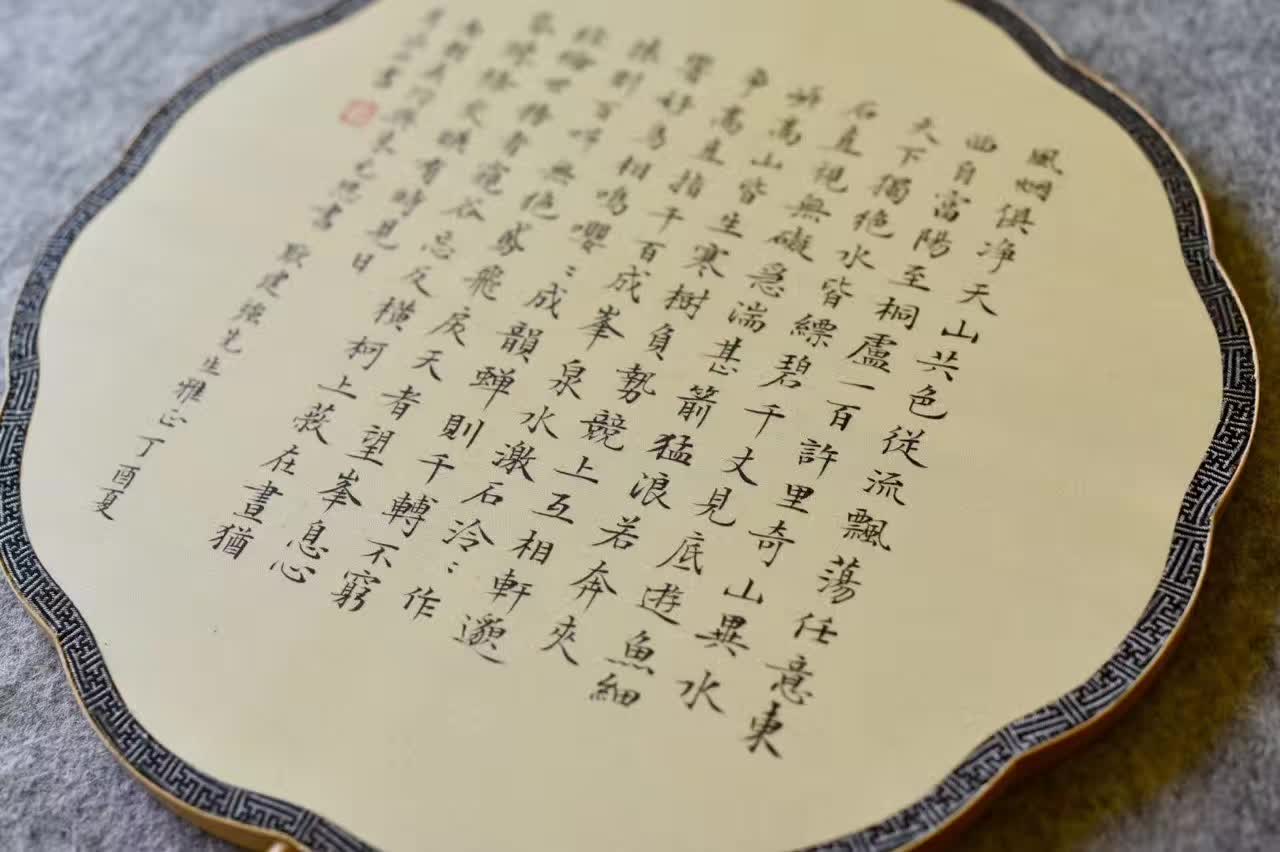 風烟俱净天山共色從流飄蕩任意東
西自富陽至桐廬一百許里奇山異水
天下獨絶水皆縹碧千丈見底遊魚細
石直視無礙急湍甚箭猛浪若奔夾
岸高山皆生寒樹負勢競上互相軒邈
爭高直指千百成峯泉水激石泠〻作
響好鳥相鳴嚶〻成韻蟬則千轉不窮
猿則百叫無絶鳶飛戾天者望峯息心
經綸世務者窺谷忘反橫柯上蔽在晝猶
昏疎條交映有時見日
南朝吳均與朱元思書 耿建強先生雅正丁酉夏
書